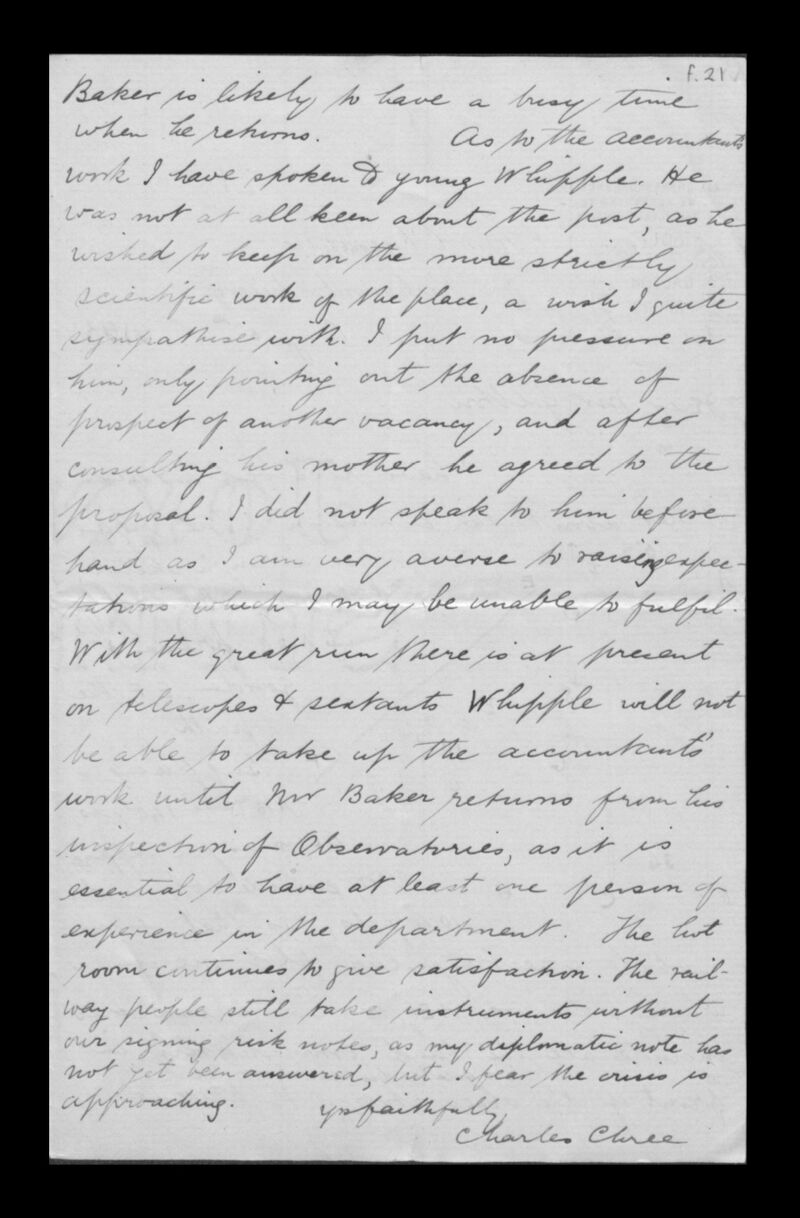 f. 21
Baker is likely to have a busy time
when he returns. As to the accountants
work I have spoken to young Whipple. He
was not at all keen about the post, as he
wished to keep on the more strictly
scientific work of the place, a wish I quite
sympathise with. I put no pressure on
him, only pointing out the absence of
prospect of another vacancy, and after
consulting his mother he agreed to the
proposal. I did not speak to him before
hand as I am very averse to raising expec-
tations which I may be unable to fulfil.
With the great run there is at present
on telescopes & sextants Whipple will not
be able to take up the accountants'
work until Mr Baker returns from his
inspection of Observatories, as it is
essential to have at least one person of
experience in the department. The hot
room continues to give satisfaction. The rail-
way people still take instruments without
our signing risk notes, as my diplomatic note has
not yet been answered, but I fear the crisis is
approaching. yrs faithfully
Charles Chree